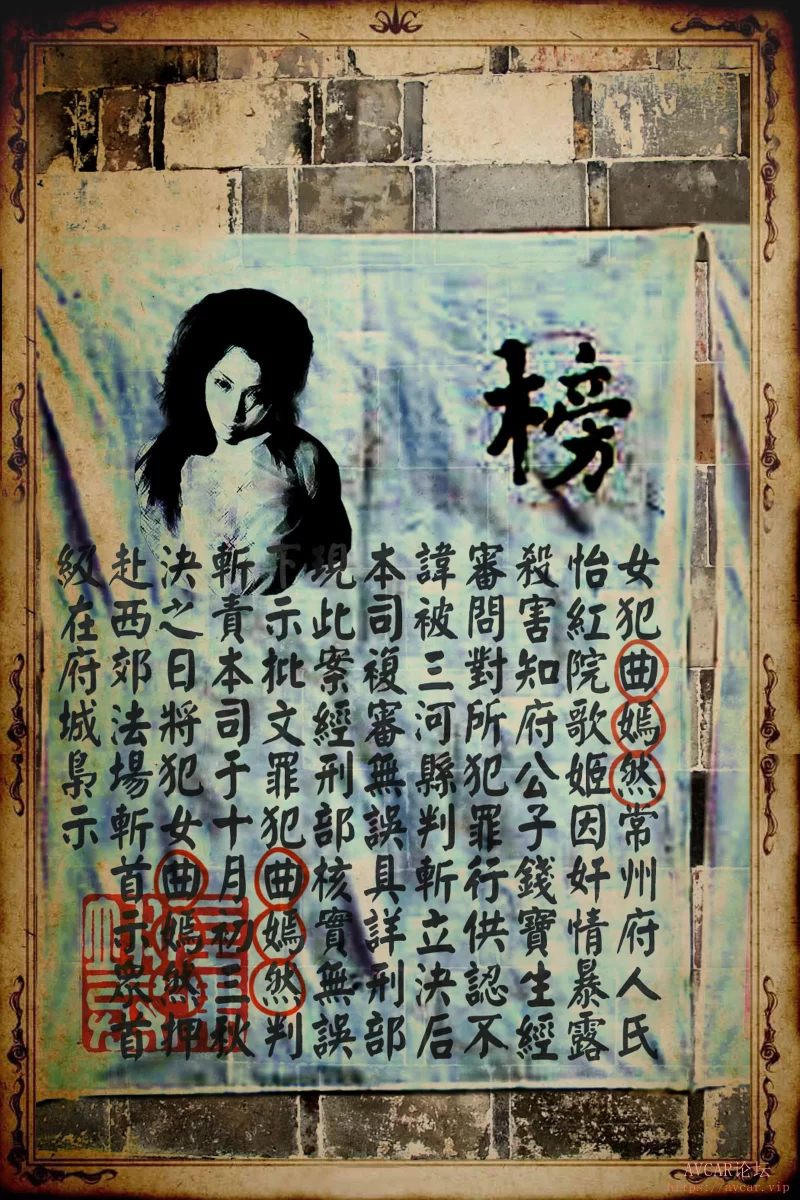 榜
女犯曲嫣然常州府人氏
怡紅院歌姬因奸情暴露
殺害知府公子錢寶生經
審問對所犯罪行供認不
諱被三河縣判斬立決后
本司複審無誤具詳刑部
現此案經刑部核實無誤
下示批文罪犯曲嫣然判
斬責本司于十月初三秋
決之日將犯女曲嫣然押
赴西郊法場斬首示眾首
級在府城梟示
AVCAR论坛
https://avcar.vip